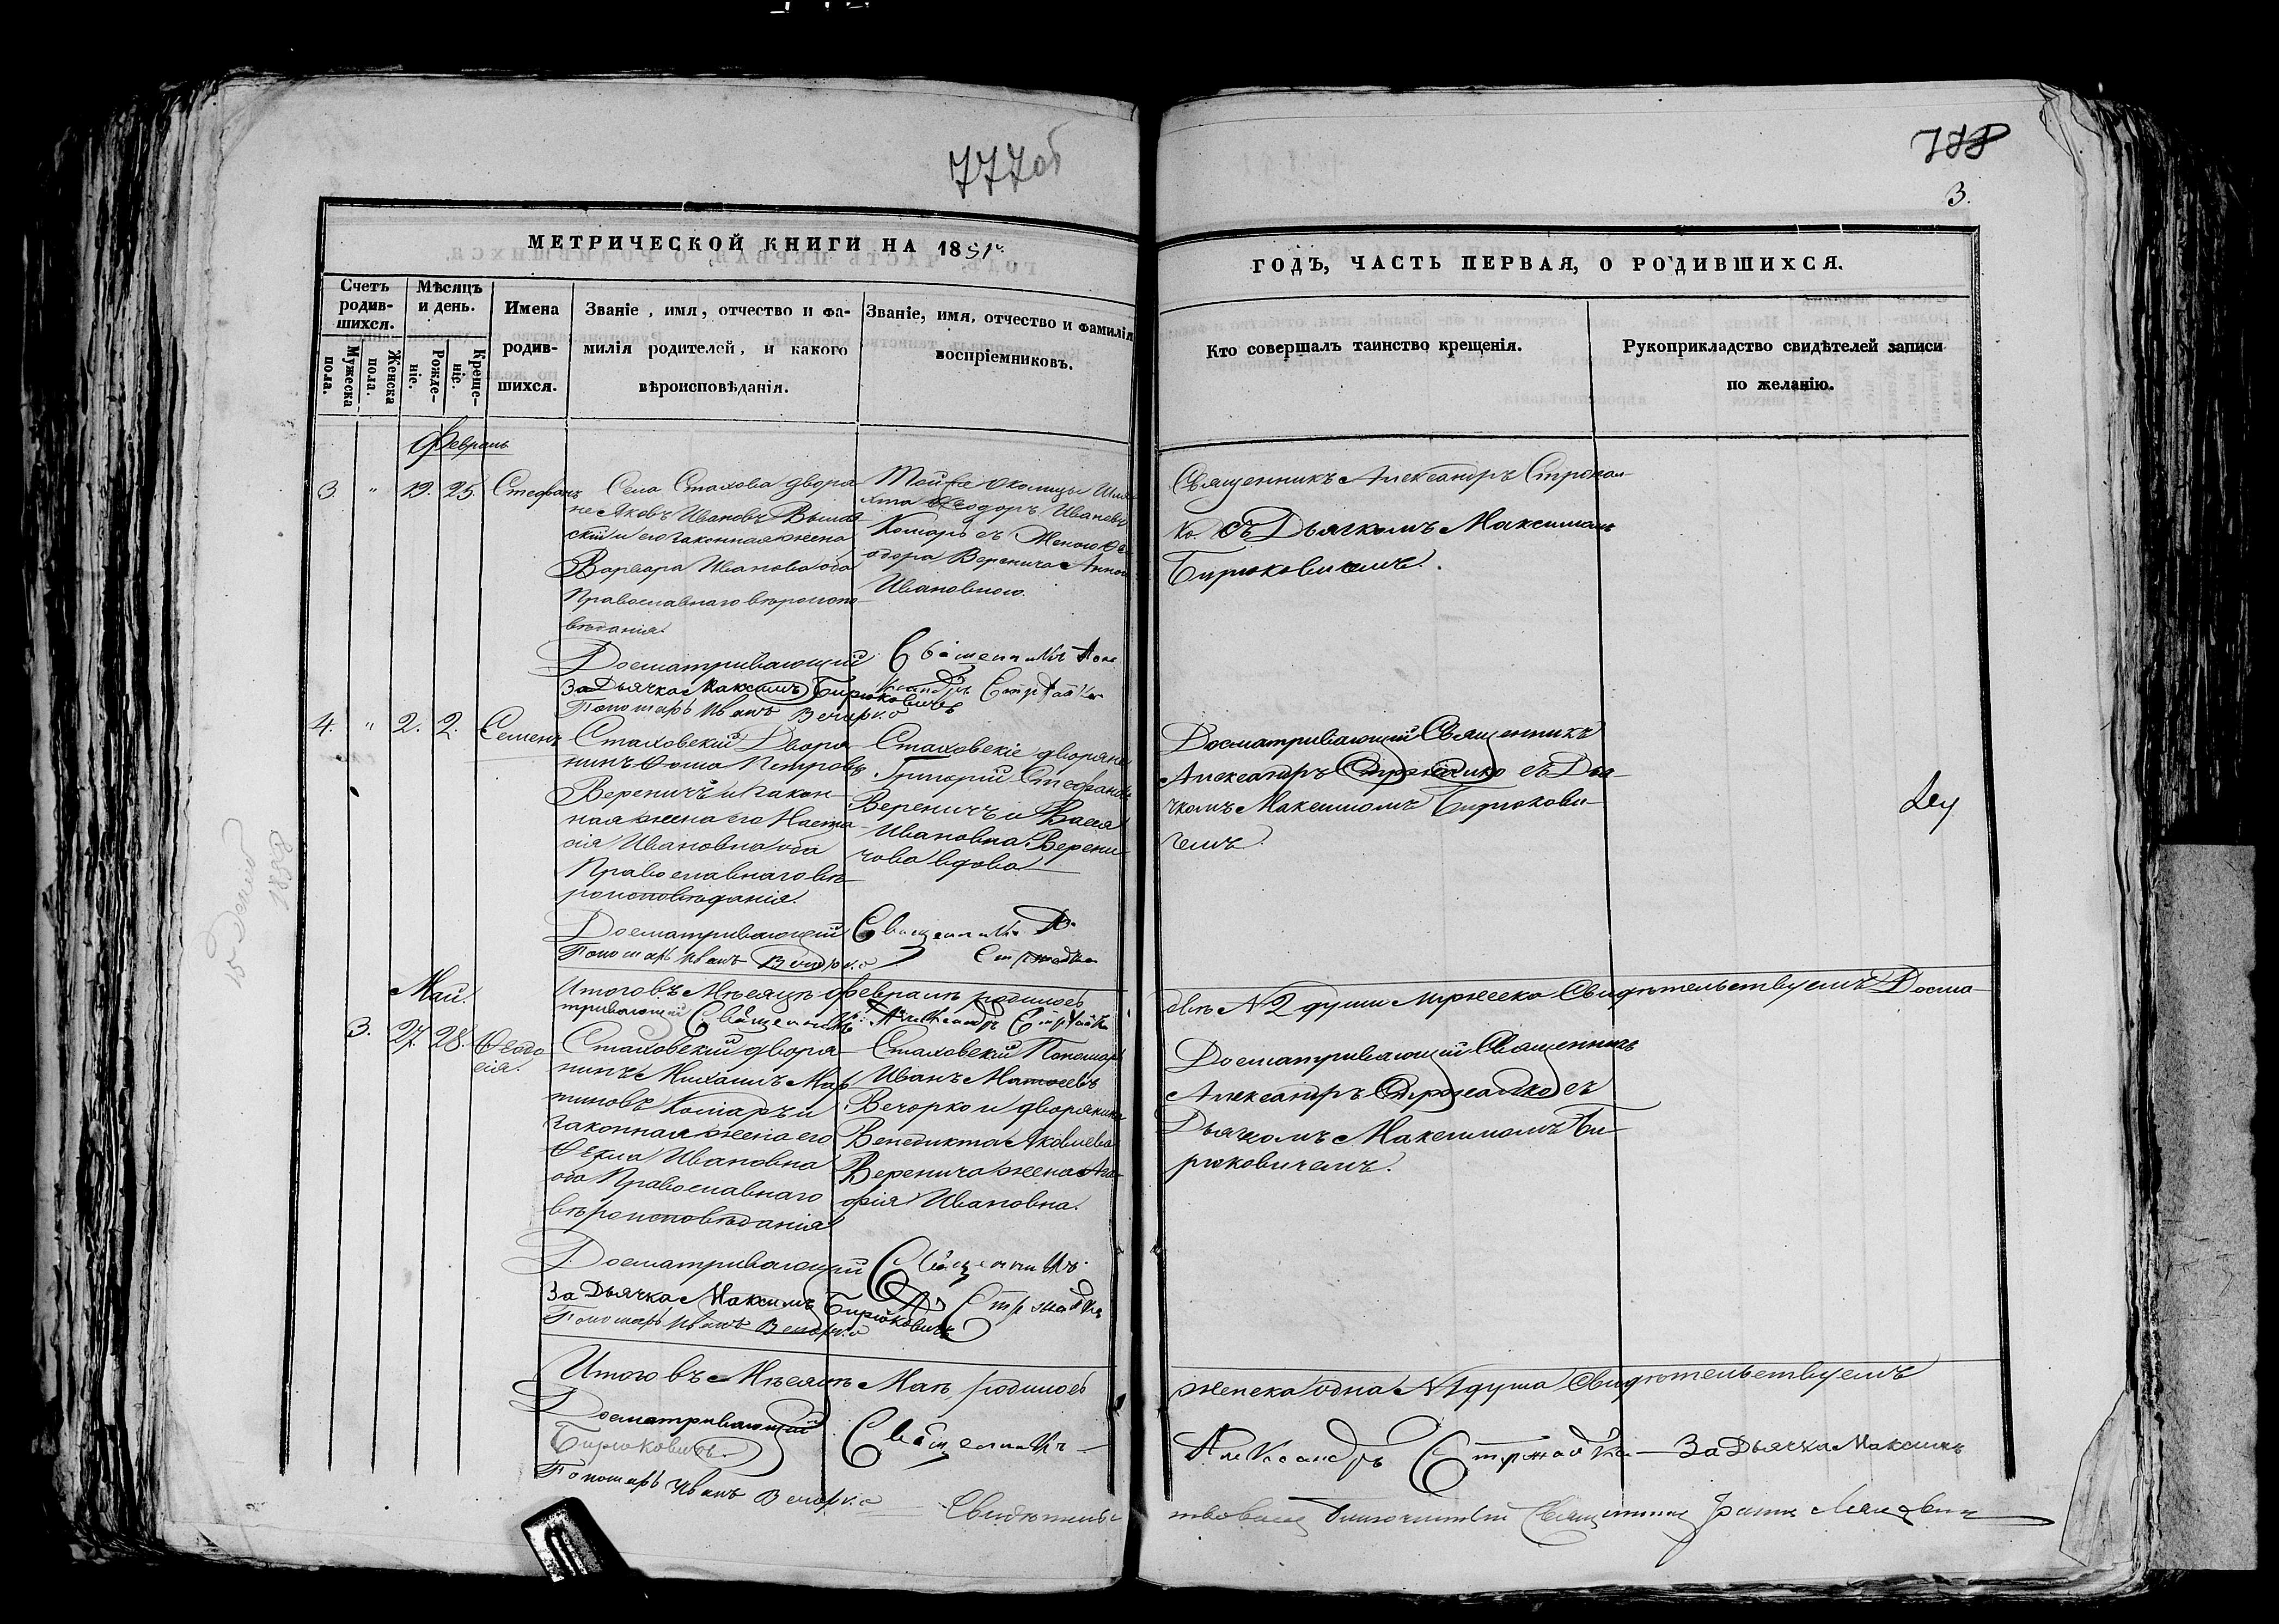 777об
3.
МЕТРИЧЕСКОЙ КНИГИ НА 1851
ГОДЪ, ЧАСТЬ ПЕРВАЯ, О РОДИВШИХСЯ.
Счетъ родив-шихся.
Мужеска пола.
Женска пола.
Мѣсяцъ и день.
Рожде-ніе.
Креще-ніе.
Имена родив-шихся.
Званіе, имя, отчество и фа-
милія родителей, и какого
вѣроисповѣданія.
Званіе, имя, отчество и фамилія
воспріемниковъ.
Кто совершалъ таинство крещенія.
Рукоприкладство свидѣтелей записи
по желанію.
Февраль
3. " 19. 25. Стефанъ
Села Стахова дворя
не Яковъ Ивановъ
скій и его законная жена
Варвара Иванова оба
Православнаго вѣроиспо-
вѣданія.
Той же околицы
Ѳеодоръ Ивановъ
Комаръ съ Женою Ѳе
одора Веренича Анною
Ивановною.
Священникъ Александръ
ко съ Дьячкомъ Максимомъ
Бирюковичемъ.
Досматривающій Священникъ Але
ксандръ
За Дьячка Максимъ Бирюковичъ
Пономарь Иванъ Вечорко
4. " 2. 2. Семенъ
Стаховскій Дворя-
нинъ Ѳома Петровъ
Вереничъ и закон-
ная жена его Наста
сія Ивановна оба
Православнаго вѣ-
роисповѣданія.
Стаховскіе дворяне
Григорій Стефановъ
Вереничъ и
Ивановна Верени-
чова вдова
Досматривающій Священникъ
Александръ Стржалко съ Дья-
чкомъ Максимомъ Бирюкови-
чемъ.
Досматривающій Священникъ А.
Пономарь Иванъ Вечорко
Итого въ Мѣсяцѣ Февралѣ родилось
двѣ N 2 души мужеска Свидѣтельствуемъ Досма-
тривающій Священникъ Александръ
Май.
3. 27. 28. Ѳеодо
сія.
Стаховскій дворя-
нинъ Михаилъ Мар
тиновъ Комаръ и
законная жена его
Ѳекла Ивановна
оба Православнаго
вѣроисповѣданія
Стаховскій Пономарь
Иванъ Матѳеевъ
Вечорко и дворянина
Венедикта Яковлева
Веренича жена Ага-
фія Ивановна.
Досматривающій Священникъ
Александръ Стржалко съ
Дьячкомъ Максимомъ Би-
рюковичемъ.
Досматривающій Священникъ
За Дьячка Максимъ Бирюковичъ
Пономарь Иванъ Вечорко
Итого въ Мѣсяцѣ Маѣ родилось
женска одна N 1 душа Свидѣтельствуемъ
Досматривающій Священникъ
Александръ За Дьячка Максимъ
Бирюковичъ.
Пономарь Иванъ Вечорко
Свидѣтельс
твовалъ Благочинный Священникъ